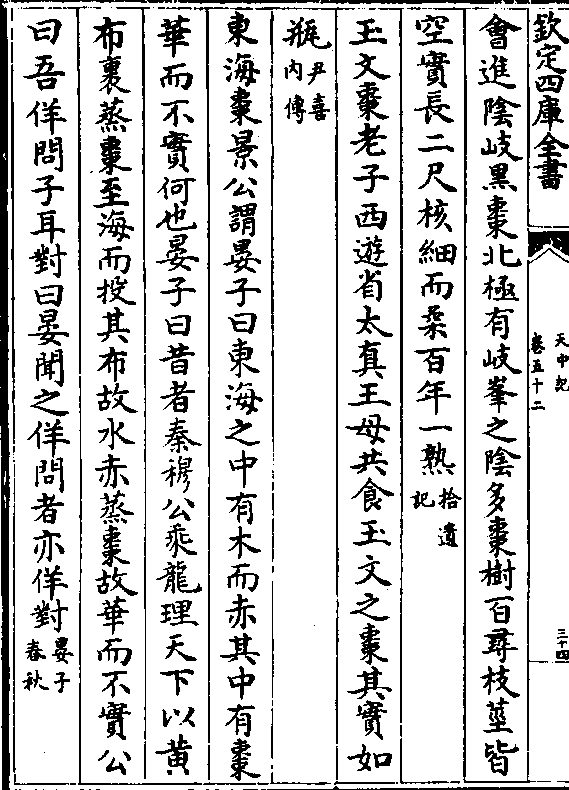 欽定四庫全書
天中記
卷五十二
三十四
會進陰岐黑棗北極有岐峯之陰多棗樹百尋枝莖皆
空實長二尺核細而柔百年一熟拾遺記
玉文棗老子西遊省太真王母共食玉文之棗其實如
瓶尹喜內傳
東海棗景公謂晏子曰東海之中有木而赤其中有棗
華而不實何也晏子曰昔者秦穆公乘龍理天下以黃
布裹蒸棗至海而投其布故水赤蒸棗故華而不實公
曰吾佯問子耳對曰晏聞之佯問者亦佯對晏子春秋